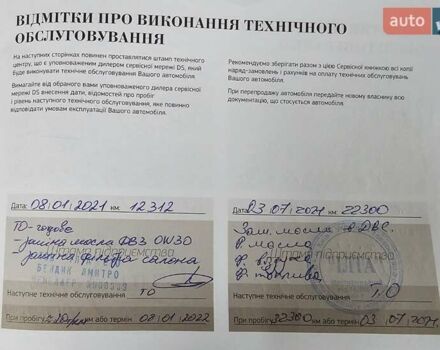 auto
ВІДМІТКИ ПРО ВИКОНАННЯ ТЕХНІЧНОГО
ОБСЛУГОВУВАННЯ
На наступних сторінках повинен проставлятися штамп технічного
центру, що є уповноваженим дилером сервісної мережі DS, який
буде виконувати технічне обслуговування Вашого автомобіля.
Вимагайте від обраного вами уповноваженого дилера сервісної
мережі DS внесення дати, відомостей про пробіг
і рівень наступного технічного обслуговування, яке повинно
відповідати умовам експлуатації Вашого автомобіля.
Рекомендуємо зберігати разом з цією Сервісної книжкою всі копії
наряд-замовлень і рахунків на оплату технічних обслуговувань
Вашого автомобіля.
При перепродажу автомобіля передайте новому власнику всю
документацію, що стосується автомобіля.
Дата: 08.01.2021 км: 12312
ТО-годове
Штамп підприємства
- заміна масла ФВЗ 0W30
- заміна фільтра салона
БЕНДИК ДМИТРО
Наступне технічне обслуговування: ТО
При пробігу: км або термін: 08 / 01 / 2022
Дата: 03.07.2021 км: 22300
Зам. масла в ДВС.
Ф. масла
Штамп підприємства
Ф.
Ф. топлива
Наступне технічне обслуговування: Т.О
При пробігу: 32300 км або термін: 03 / 07 /